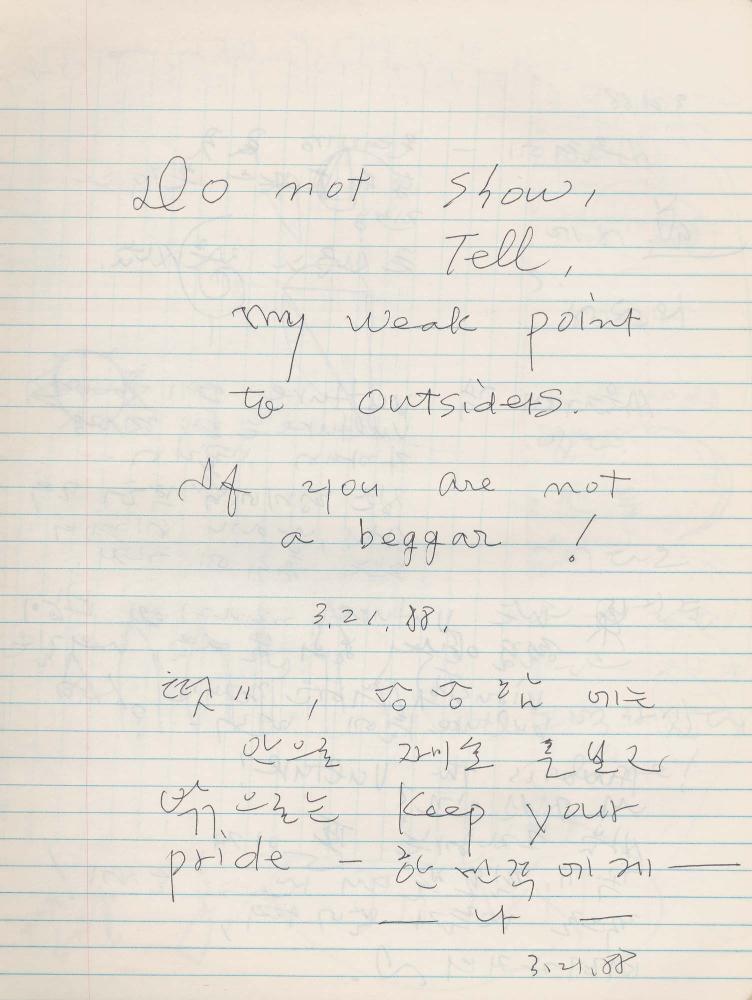 Do not show,
Tell,
my weak point
to outsiders.
If you are not
a beggar !
3.21.88.
에는
안으로
으로는 Keep your
pride — 한민족에게 —
— 나 —
3.21.88